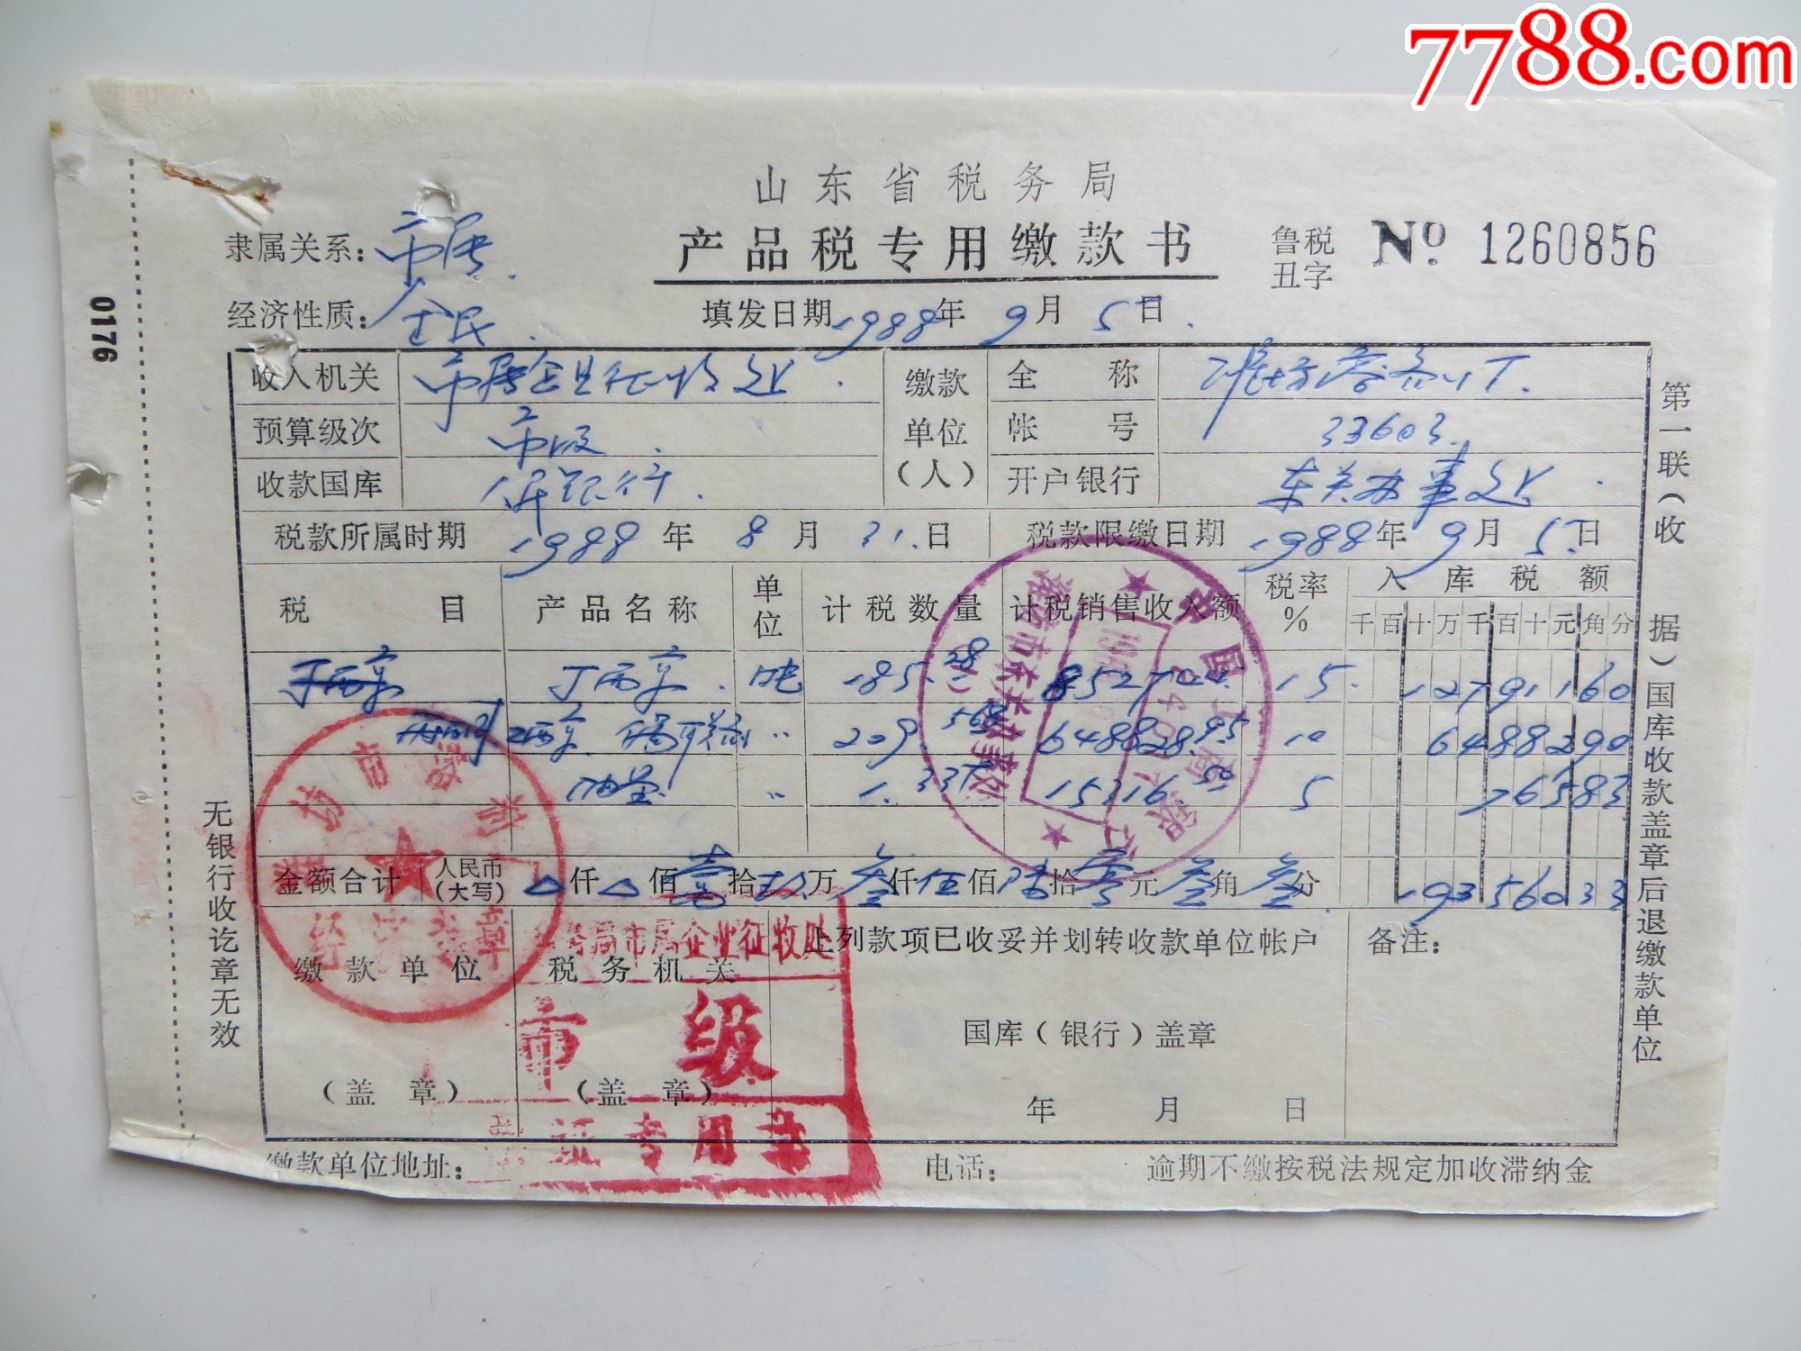 7788.com
山东省税务局
产品税专用缴款书
鲁税丑字 No. 1260856
隶属关系：市属
经济性质：全民
填发日期1988年9月5日
0176
收入机关 市属企业征收处
缴款单位（人） 全称 潍坊
预算级次 市级
帐号 33603
收款国库 人民银行
开户银行 东关办事处
税款所属时期 1988年8月31日
税款限缴日期 1988年9月5日
税目 产品名称 单位 计税数量 计税销售收入额 税率% 入库税额
千百十万千百十元角分
吨 185.28 15 12791160
〃 209.568 648828.95 10 6488290
〃 15316.50 5 76583
金额合计 人民币（大写） 仟 佰壹拾玖万叁仟伍佰陆拾零元叁角叁分 19356033
缴款单位
（盖章）
税务机关
（盖章）
上列款项已收妥并划转收款单位帐户
国库（银行）盖章
年 月 日
备注：
缴款单位地址：
电话：
逾期不缴按税法规定加收滞纳金
无银行收讫章无效
第一联（收据）国库收款盖章后退缴款单位
税务局市属企业征收处
市级
专用章
中国工商银行
潍坊市东关办事处